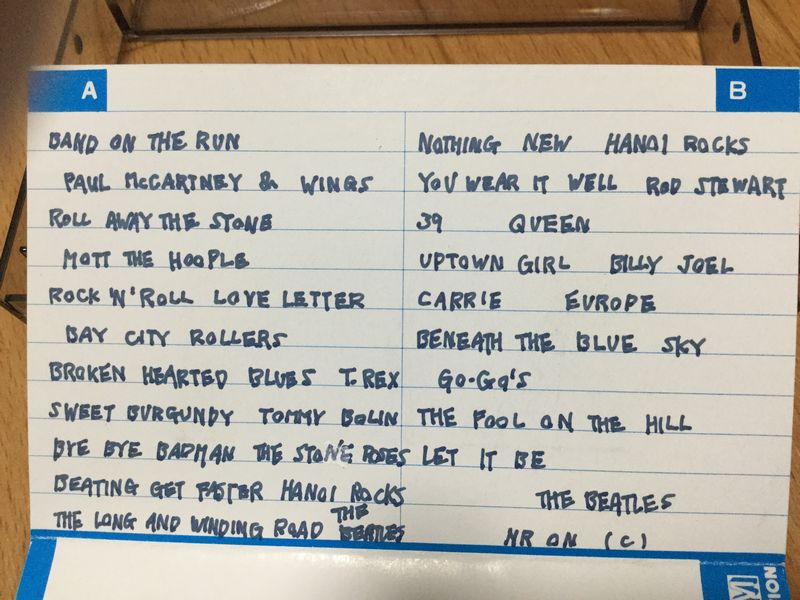 A
BAND ON THE RUN
PAUL McCARTNEY & WINGS
ROLL AWAY THE STONE
MOTT THE HOOPLE
ROCK 'N' ROLL LOVE LETTER
BAY CITY ROLLERS
BROKEN HEARTED BLUES T.REX
SWEET BURGUNDY TOMMY BOLIN
BYE BYE BADMAN THE STONE ROSES
BEATING GET FASTER HANOI ROCKS
THE LONG AND WINDING ROAD THE BEATLES
B
NOTHING NEW HANOI ROCKS
YOU WEAR IT WELL ROD STEWART
39 QUEEN
UPTOWN GIRL BILLY JOEL
CARRIE EUROPE
BENEATH THE BLUE SKY
GO-GO'S
THE FOOL ON THE HILL
LET IT BE
THE BEATLES
NR ON (C)